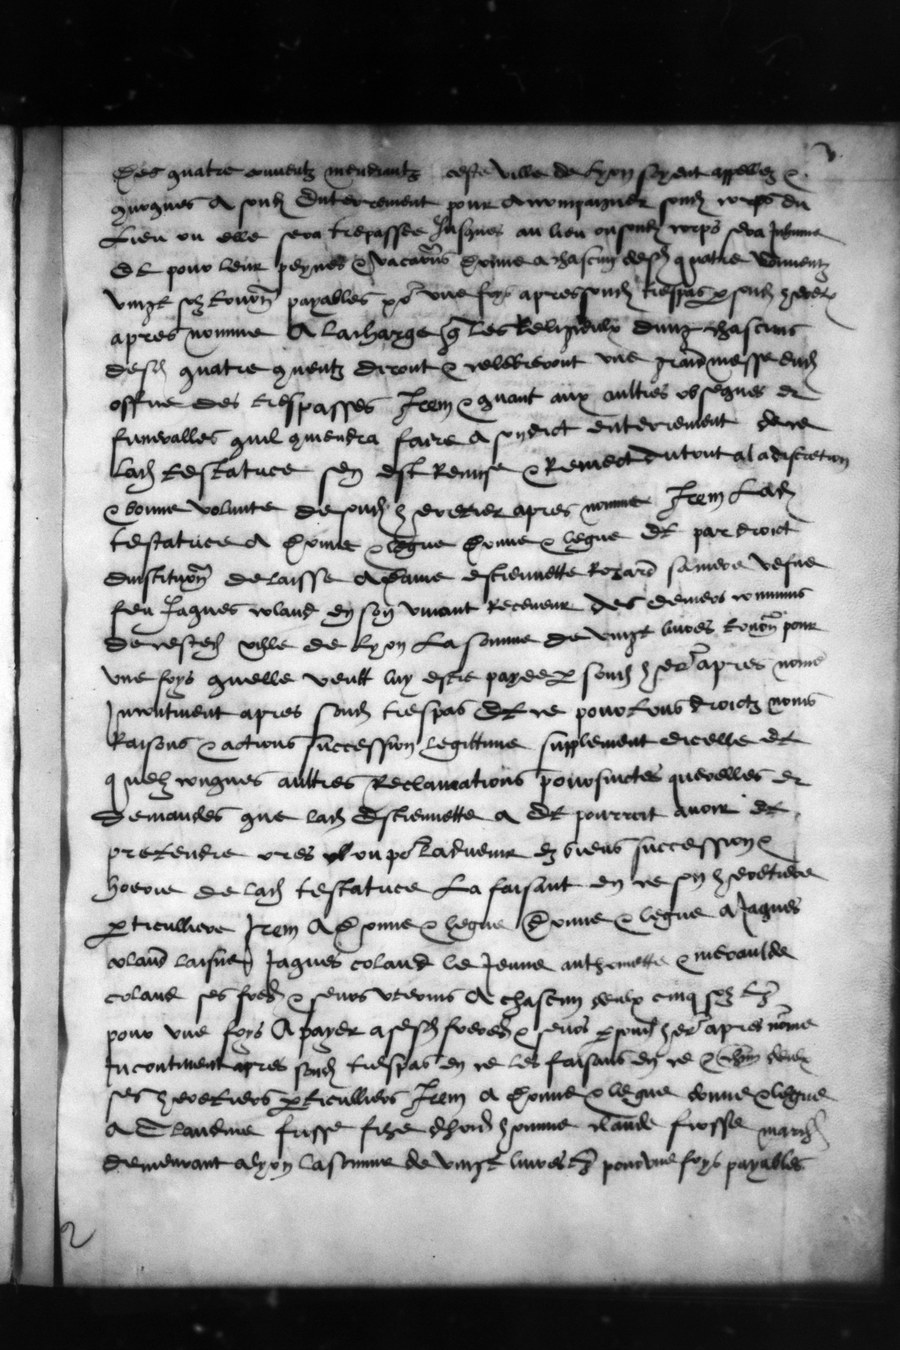 des quatre couventz mendiantz ceste ville de Lyon soyent appellez &
à sond enterrement pour acompaigner sond corps du
lieu ou elle sera trepassee jusques au lieu ou sond corps sera inhume
Et pour leur peynes & vacacions donne a chascun desd quatre couventz
vingt solz tourn payables pour une foys apres sond trespas p sond heretier
apres nomme A la charge q les Religieulx dung chascuns
desd quatre couventz diront & celebreront une grand messe dud
office des trespasses Item & quant aux aultres obseques et
funeralles quil conviendra faire a sondict enterrement de ce
lad testatrice sen est remise & Remect du tout a la discretion
& bonne volunte de sond heretier apres nomme Item Lad
testatrice A donne & legue donne & legue et par droict
dinstitution delaisse a dame Estiennette sa mere vefve
feu Jaques Coland en son vivant Receveur des deniers communs
de cested ville de Lyon La somme de vingt livres tourn pour
une foys quelle veult luy estre payee p sond her apres nome
Incontinent apres sond trespas Et ce pour tous droictz noms
Raisons & actions succession legittime supplement dicelle et
quelzconques aultres Reclamations poursuictes querelles et
demandes que lad Estiennette a et pourroit avoir et
pretendre ores ou po Ladvenir ez biens succession &
hoerie de lad testatrice La faisant en ce son heretiere
pticulliere Item A donne & legue donne & legue a Jaques
coland laisne Jaques coland le Jeune anthoinette &
coland ses freres & seurs uterins A chascun deulx cinq solz tz
pour une foys A payer a sesd freres & seurs p sond her apres nome
Incontinent apres sond trespas en ce les faisans en ce & deulx
ses heretiers pticulliers Item a donne & legue donne & legue
A Claudine frisse fille dhon homme claude frisse march
demeurant a lyon la somme de vingt livres tz pour une foys payables
2